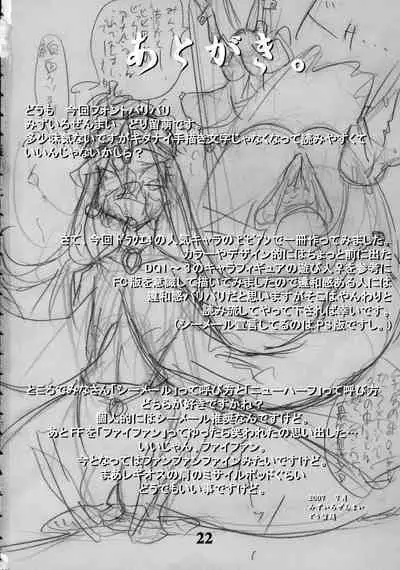 あとがき。
どうも 今回フォントバリバリ
みずいろぜんまい どり留萌です
多少味気ないですがキタナイ手描き文字じゃなくなって読みやすくて
いいんじゃないかしら?
さて、今回ドラクエ4の人気キャラのビビアンで一冊作ってみました。
カラーやデザイン的にはちょっと前に出た
DQ1~3のキャラフィギュアの遊び人等を参考に
FC版を意識して描いてみましたので違和感ある人には
違和感バリバリだと思いますがそこはやんわりと
読み流してやって下されば幸いです。
(シーメール宣言してるのはPS版ですし。)
ところでみなさん「シーメール」って呼び方と「ニューハーフ」って呼び方
どちらが好きですかね?
個人的にはシーメール推奨なんですけど。
あとFFを「ファイファン」ってゆったら笑われたの思い出した…
いいじゃん、ファイファン。
今となってはファンファンファインみたいですけど。
まあレギオスの肩のミサイルポッドぐらい
どうでもいい事ですけど。
2007
みずいろぜんまい
どり留萌
22